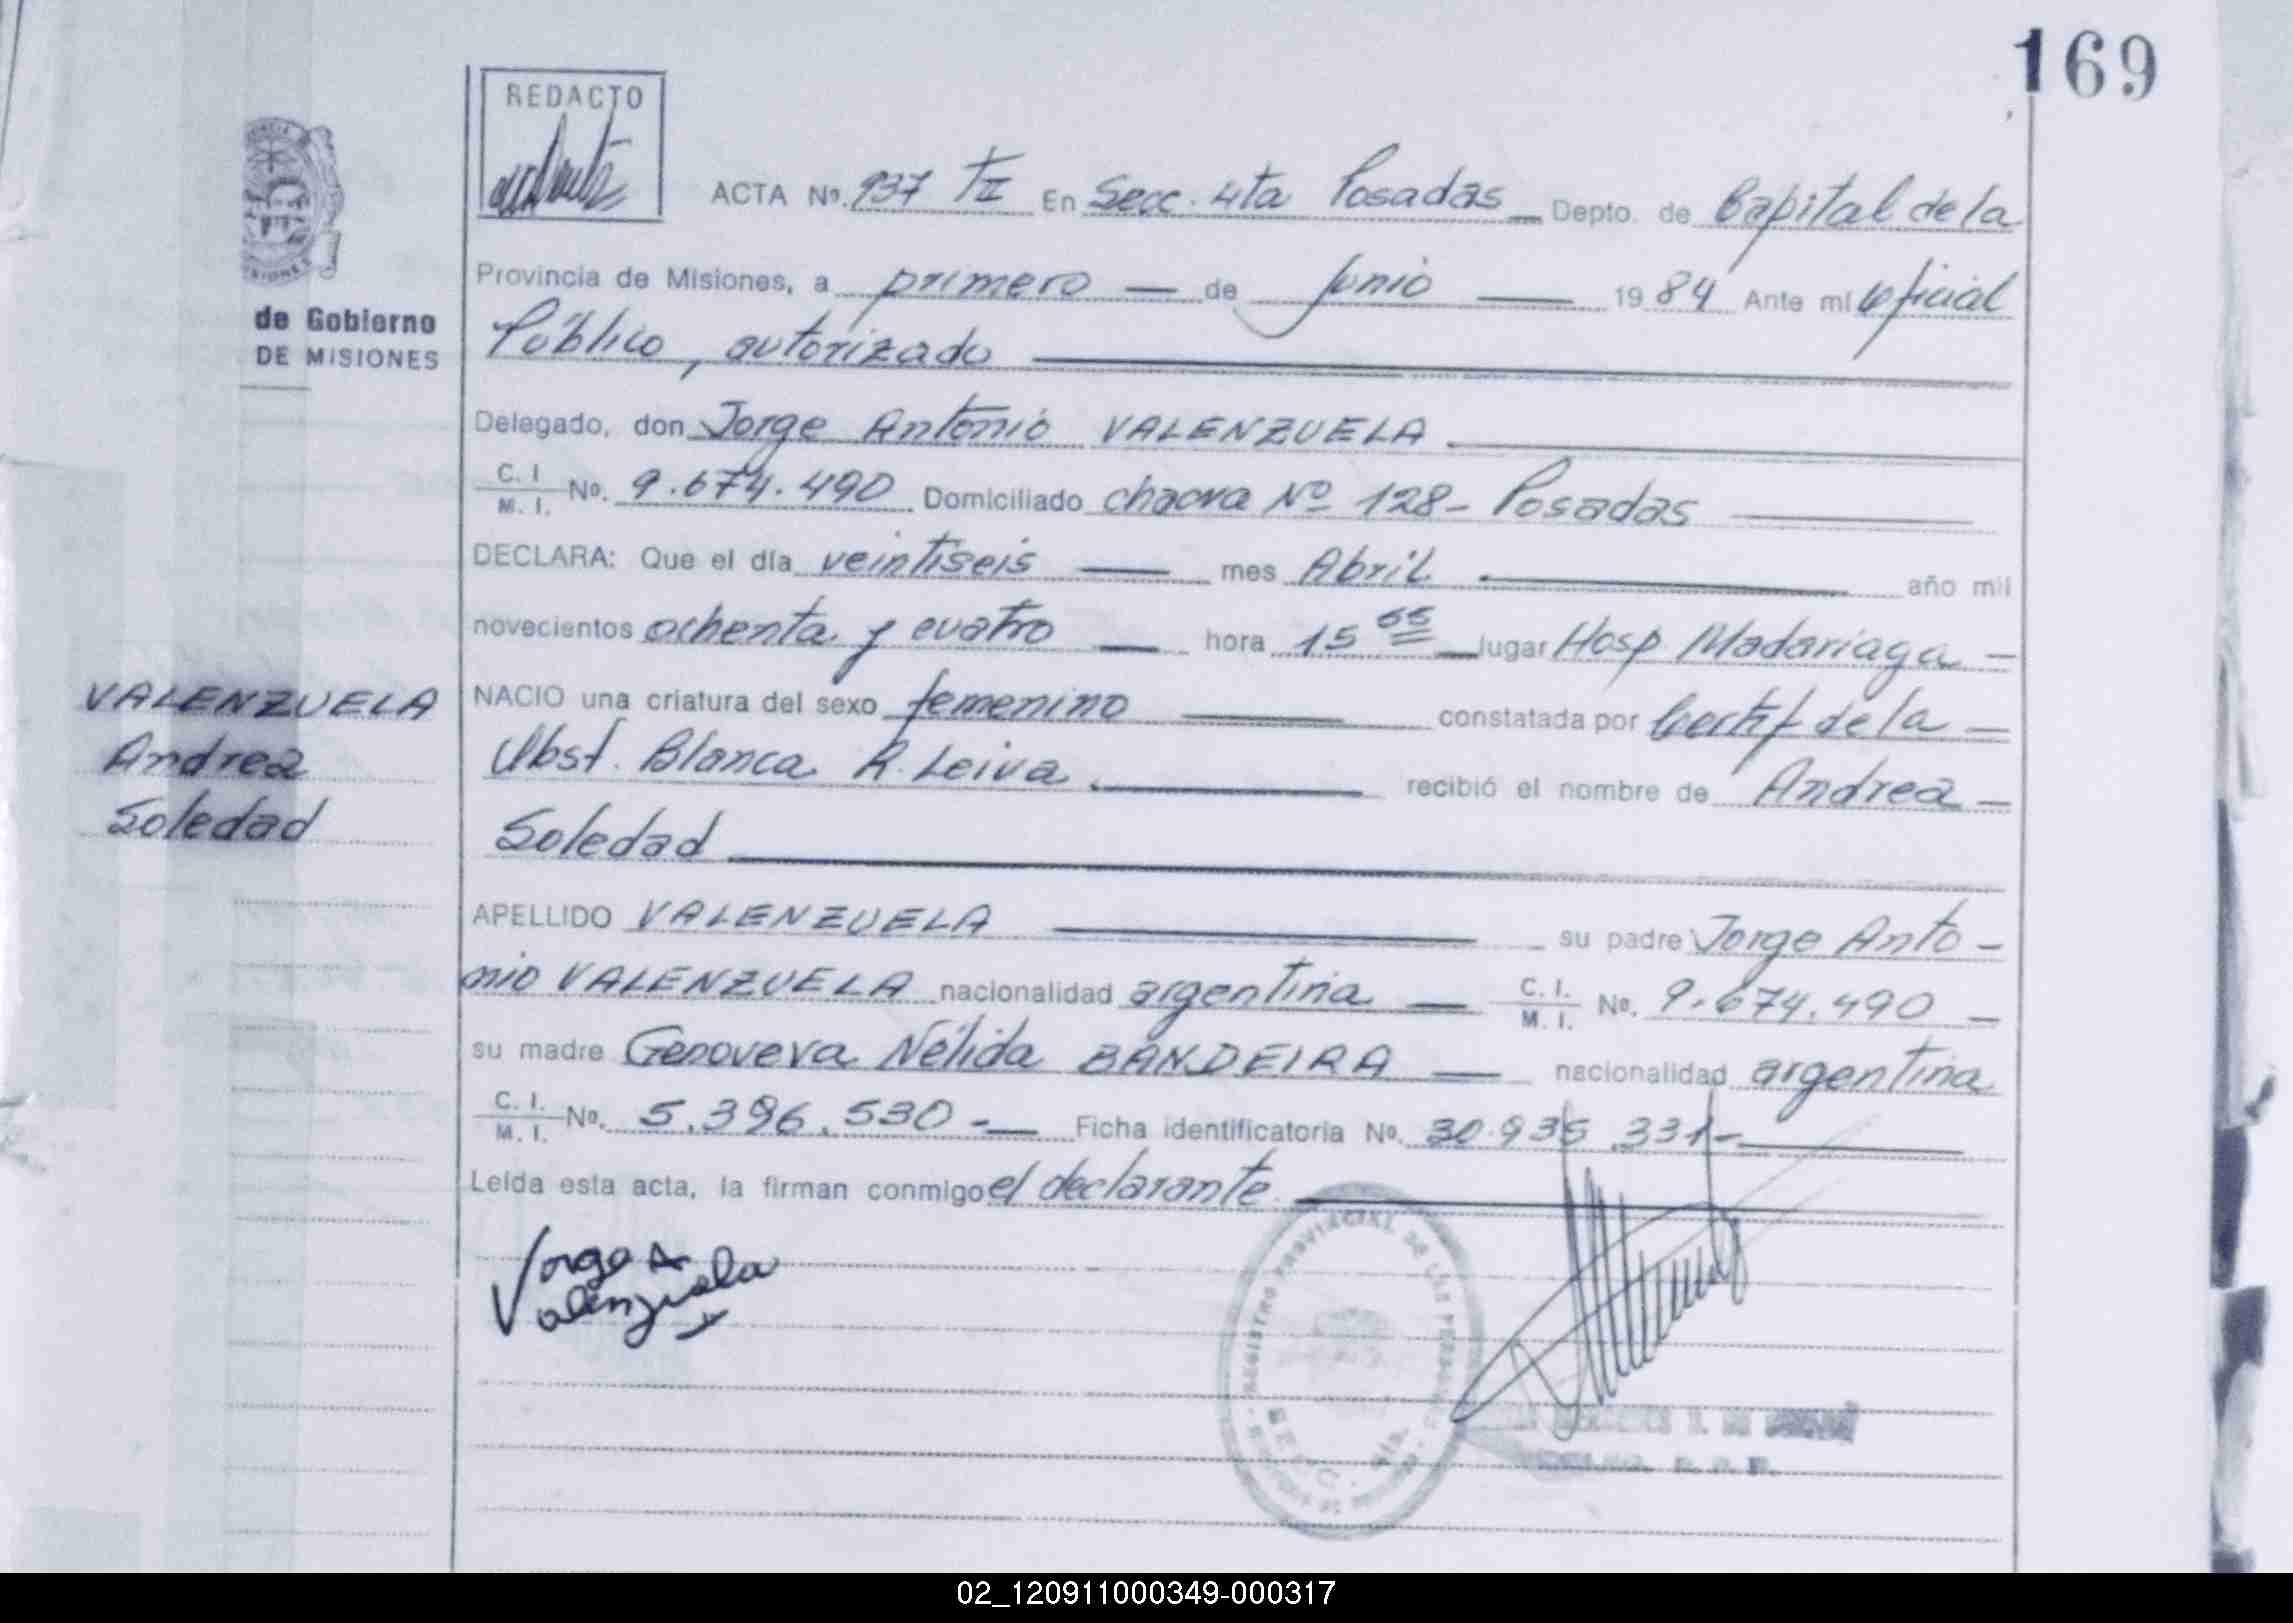 169
REDACTO
ACTA Nº. 937 TI En Secc. 4ta Posadas Depto. de Capital de la
Provincia de Misiones, a primero — de Junio — 1984 Ante mí Oficial
de Gobierno
DE MISIONES
Público, autorizado
Delegado, don Jorge Antonio VALENZUELA
C. I. M. I. Nº. 9.674.490 Domiciliado chacra Nº 128- Posadas
DECLARA: Que el día veintiseis — mes Abril año mil
novecientos ochenta y cuatro — hora 15 lugar Hosp Madariaga —
VALENZUELA
Andrea
Soledad
NACIO una criatura del sexo femenino — constatada por Certif de la —
Obst. Blanca R. Leiva recibió el nombre de Andrea —
Soledad
APELLIDO VALENZUELA su padre Jorge Anto-
nio VALENZUELA nacionalidad argentina — C. I. M. I. Nº. 9.674.490 —
su madre Genoveva Nélida BANDEIRA — nacionalidad argentina
C. I. M. I. Nº. 5.396.530 -— Ficha identificatoria Nº. 30.935.331-
Leída esta acta, la firman conmigo el declarante
Jorge A
Valenzuela
REGISTRO PROVINCIAL DE LAS PERSONAS
02_120911000349-000317